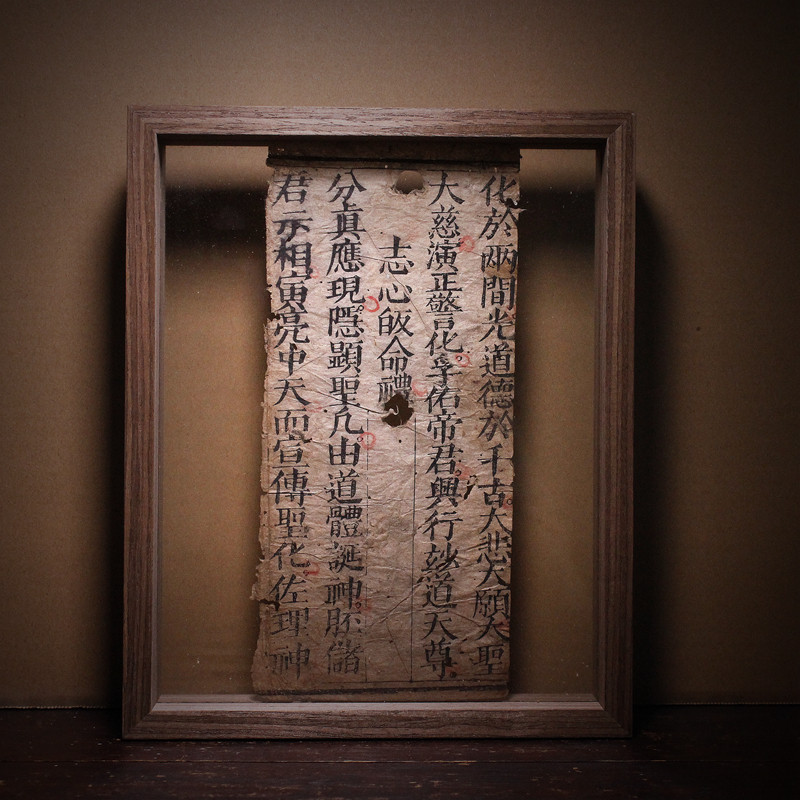 化於兩間光道德於千古大悲大願大聖
大慈演正警化孚佑帝君興行玅道天尊
志心皈命禮
分眞應現隱顯聖凡由道體誕神胚儲
君示相寅亮中天而宣傳聖化佐理神